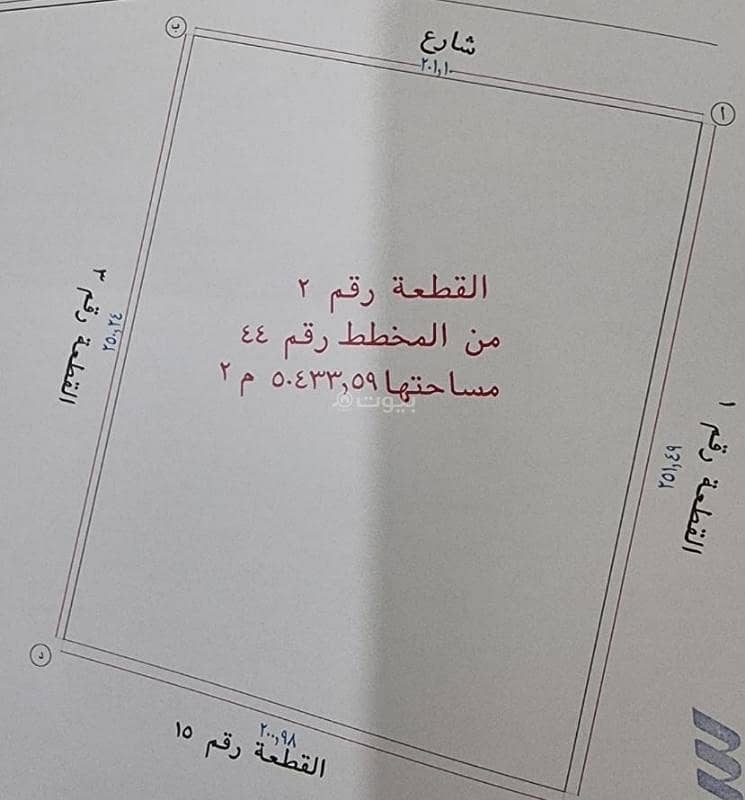 ب
شارع
٢٠١,١٠
ا
القطعة رقم ٢
من المخطط رقم ٤٤
مساحتها ٥٠٤٣٣,٥٩ م ٢
بيوت
القطعة رقم ٣
٢٥٠,٢٤
القطعة رقم ١
٢٥١,٤٩
د
٢٠٠,٩٨
القطعة رقم ١٥